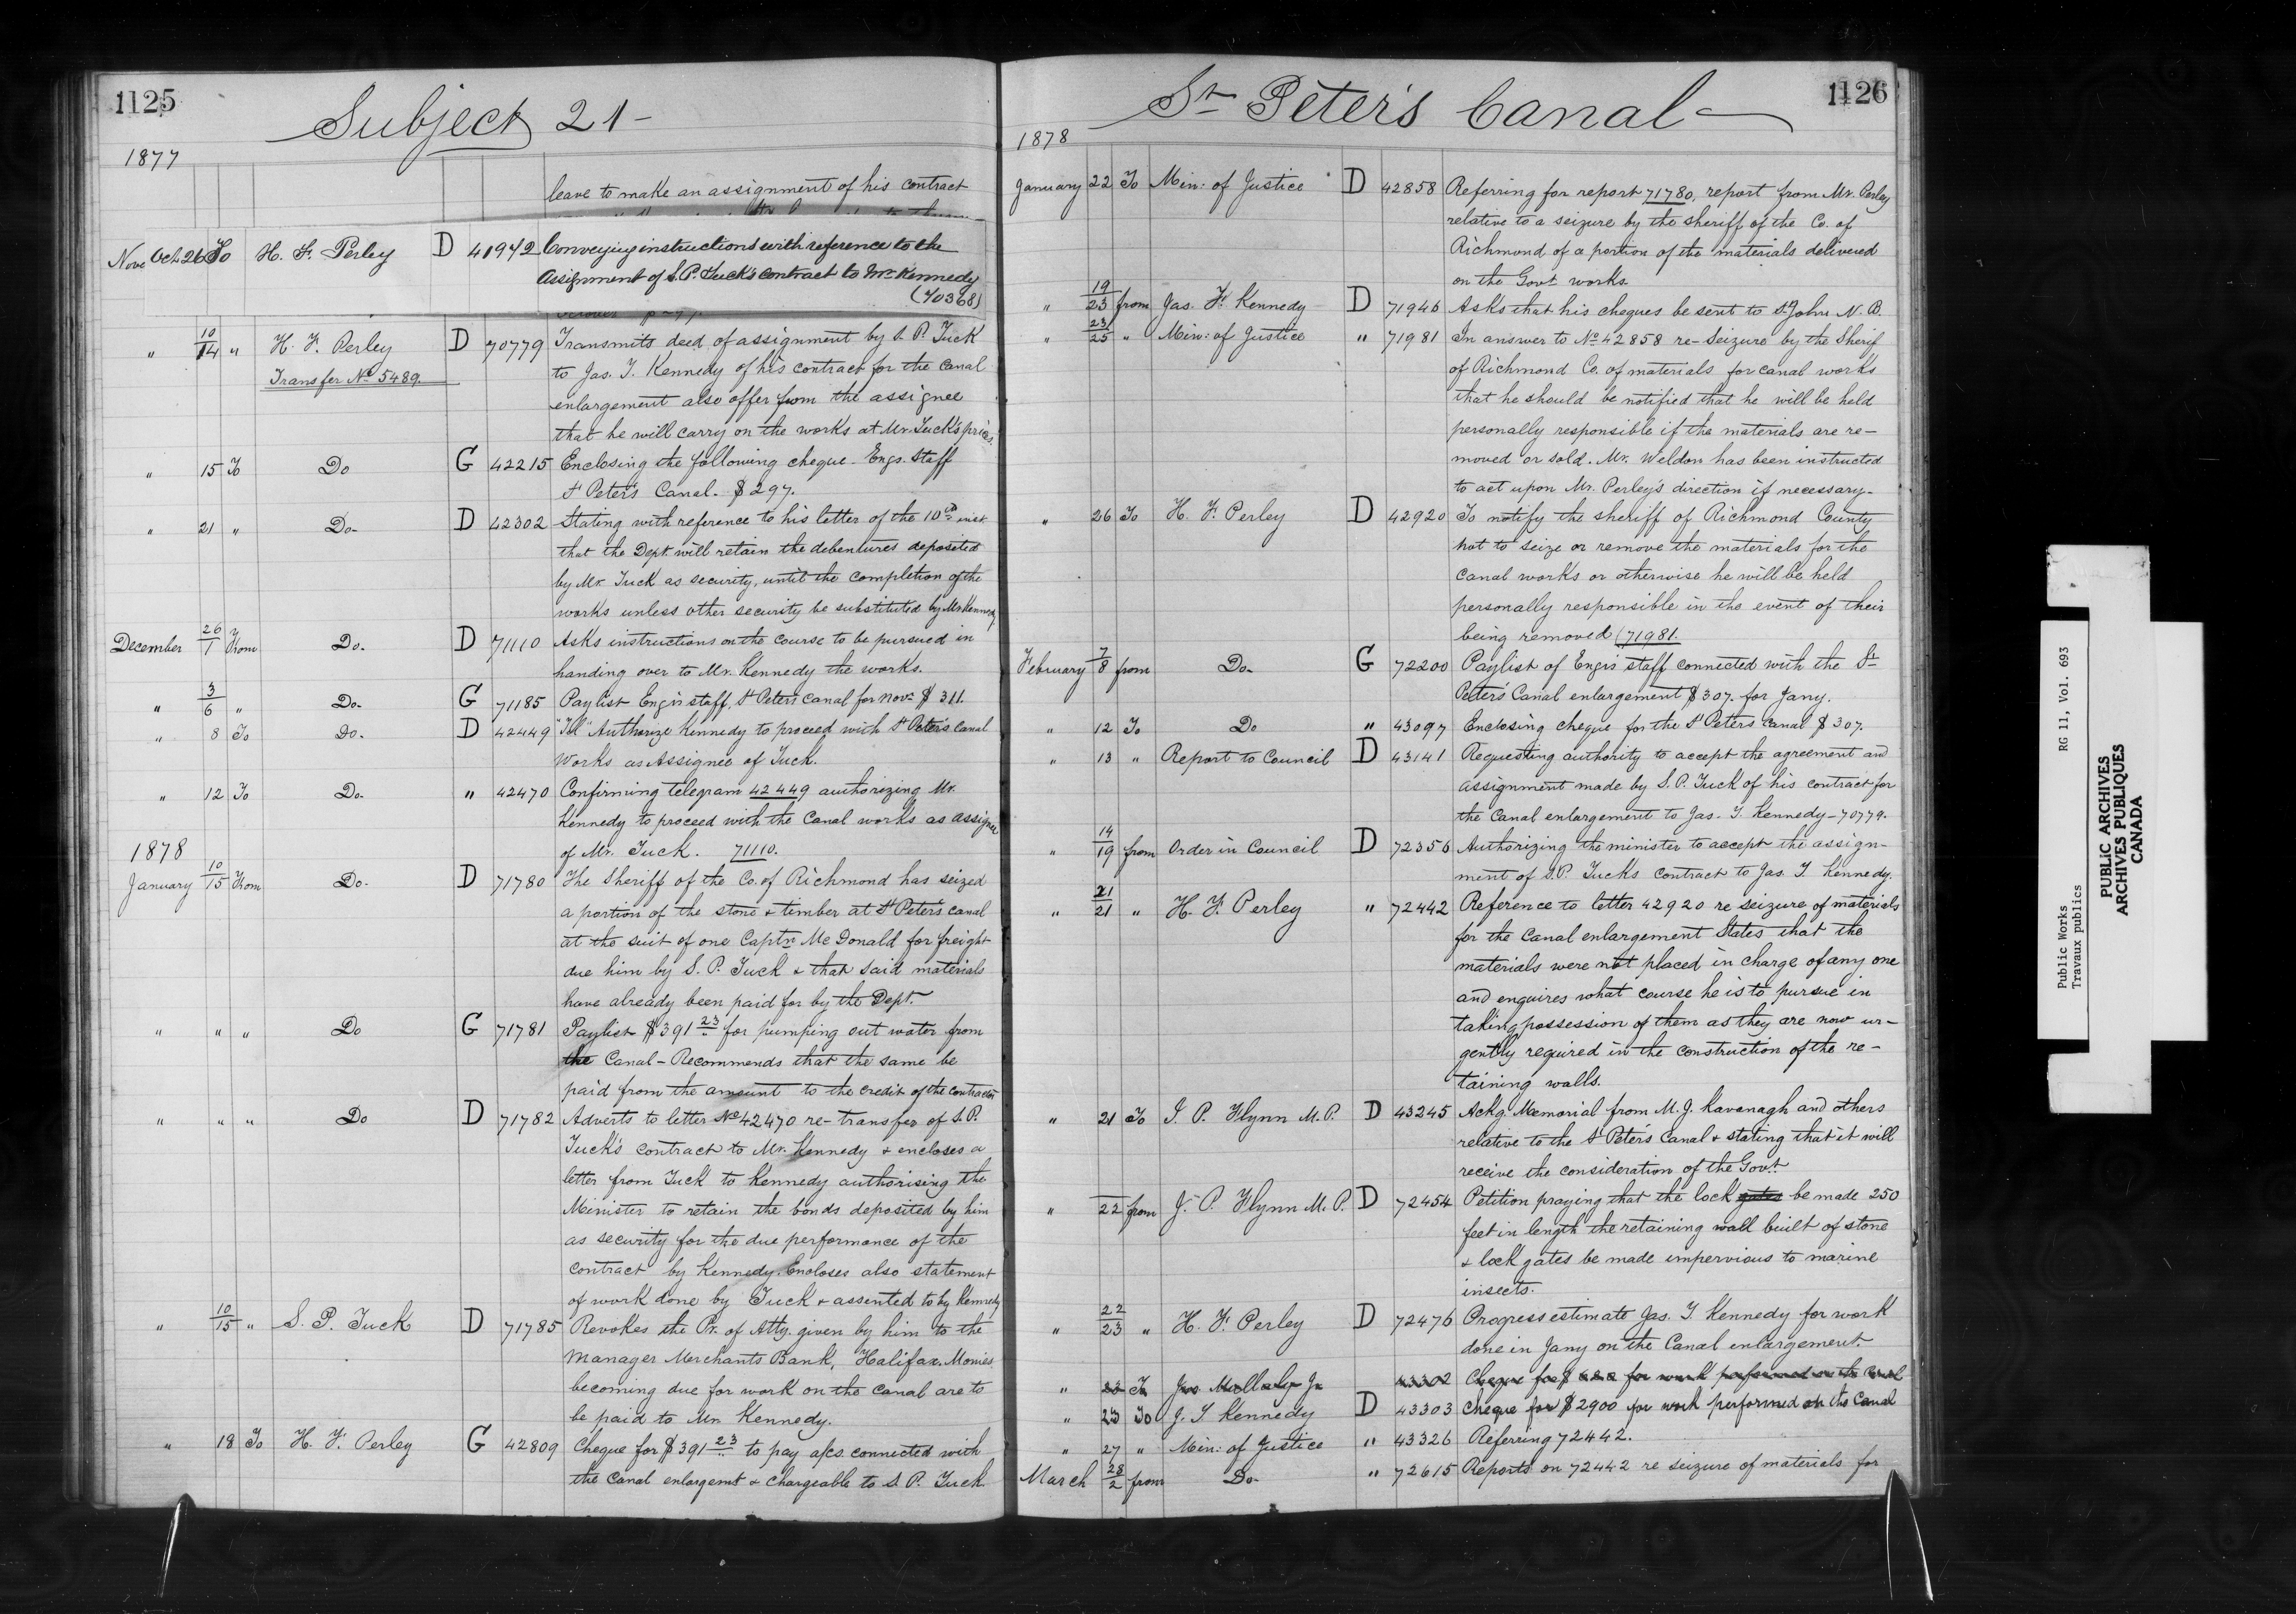 1125
Subject 21
1877
leave to make an assignment of his contract
Nov Oct 26 To H. F. Perley D 41942 Conveying instructions with reference to the
assignment of S. P. Tuck's contract to Mr. Kennedy
(70368)
" 10/14 " H. F. Perley D 70779 Transmits deed of assignment by S. P. Tuck
Transfer No 5489. to Jas. T. Kennedy of his contract for the canal
enlargement also offer from the assignee
that he will carry on the works at Mr. Tuck's prices.
" 15 To Do G 42215 Enclosing the following cheque - Engs. Staff
St Peter's Canal. $297.
" 21 " Do- D 42302 Stating with reference to his letter of the 10th inst
that the Dept. will retain the debentures deposited
by Mr. Tuck as security, until the completion of the
works unless other security be substituted by Mr Kennedy
December 26/1 From Do. D 71110 Asks instructions on the course to be pursued in
handing over to Mr. Kennedy the works.
" 3/6 " Do- G 71185 Paylist Engrs staff, St Peters Canal for Novr. $311.
" 8 To Do. D 42449 "Tel" Authorize Kennedy to proceed with St Peter's Canal
Works as Assignee of Tuck.
" 12 To Do- " 42470 Confirming telegram 42449 authorizing Mr.
Kennedy to proceed with the Canal works as assignee
of Mr. Tuck. 71110.
1878
January 10/15 From Do- D 71780 The Sheriff of the Co. of Richmond has seized
a portion of the stone & timber at St Peter's canal
at the suit of one Captn. McDonald for freight
due him by S. P. Tuck & that said materials
have already been paid for by the Dept.
" " " Do G 71781 Paylist $391 23 for pumping out water from
the Canal - Recommends that the same be
paid from the amount to the credit of the contractor
" " " Do D 71782 Adverts to letter No 42470 re-transfer of S. P.
Tuck's contract to Mr. Kennedy & encloses a
letter from Tuck to Kennedy authorising the
Minister to retain the bonds deposited by him
as security for the due performance of the
contract by Kennedy. Encloses also statement
of work done by Tuck & assented to by Kennedy
" 10/15 " S. P. Tuck D 71785 Revokes the Pr. of Atty. given by him to the
Manager Merchants Bank, Halifax. Monies
becoming due for work on the canal are to
be paid to Mr. Kennedy.
" 18 To H. F. Perley G 42809 Cheque for $391 23 to pay a/cs connected with
the Canal enlargemt & chargeable to S. P. Tuck.
1126
St Peter's Canal
1878
January 22 To Min: of Justice D 42858 Referring for report 71780, report from Mr. Perley
relative to a seizure by the sheriff of the Co. of
Richmond of a portion of the materials delivered
on the Govt works
" 19/23 from Jas. T. Kennedy D 71946 Asks that his cheques be sent to St John N. B.
" 23/25 " Min: of Justice " 71981 In answer to No 42858 re-Seizure by the Sherif
of Richmond Co. of materials for canal works
that he should be notified that he will be held
personally responsible if the materials are re-
moved or sold. Mr. Weldon has been instructed
to act upon Mr. Perley's direction if necessary-
" 26 To H. F. Perley D 42920 To notify the sheriff of Richmond County
not to seize or remove the materials for the
canal works or otherwise he will be held
personally responsible in the event of their
being removed (71981.
February 7/8 from Do- G 72200 Paylist of Engrs staff connected with the St
Peter's Canal enlargement $307. for Jany.
" 12 To Do " 43097 Enclosing cheque for the St Peters Canal $307.
" 13 " Report to Council D 43141 Requesting authority to accept the agreement and
assignment made by S. P. Tuck of his contract for
the Canal enlargement to Jas. T. Kennedy - 70779.
" 14/19 from Order in Council D 72356 Authorizing the minister to accept the assign-
ment of S. P. Tucks contract to Jas. T Kennedy.
" 21/21 " H. F. Perley " 72442 Reference to letter 42920 re seizure of materials
for the Canal enlargement States that the
materials were not placed in charge of any one
and enquires what course he is to pursue in
taking possession of them as they are now ur-
gently required in the construction of the re-
taining walls.
" 21 To J. P. Flynn M. P. D 43245 Ackg. Memorial from M. J. Kavanagh and others
relative to the St Peter's Canal & stating that it will
receive the consideration of the Govt.
" 22 from J. P. Flynn M. P. D 72454 Petition praying that the lock gates be made 250
feet in length the retaining wall built of stone
& lock gates be made impervious to marine
insects.
" 22/23 " H. F. Perley D 72476 Progress estimate Jas. T Kennedy for work
done in Jany on the Canal enlargement.
" 23 To 43302 Cheque for $ for work performed on the Canal
" 23 To J. T Kennedy D 43303 Cheque for $2900 for work performed on the Canal
" 27 " Min: of Justice " 43326 Referring 72442.
March 28/2 from Do- " 72615 Reports on 72442 re seizure of materials for
Public Works RG 11, Vol. 693
Travaux publics
PUBLIC ARCHIVES
ARCHIVES PUBLIQUES
CANADA